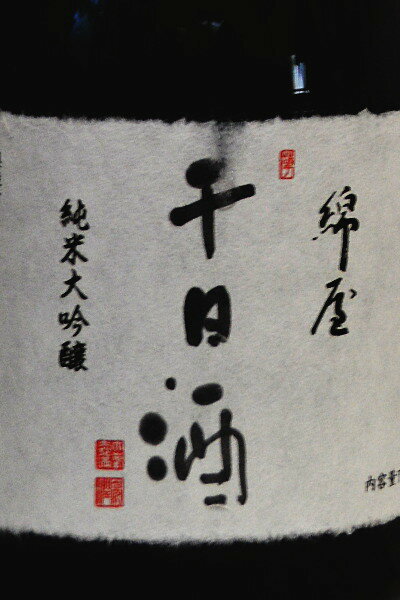 綿屋
千日酒
純米大吟醸
内容量